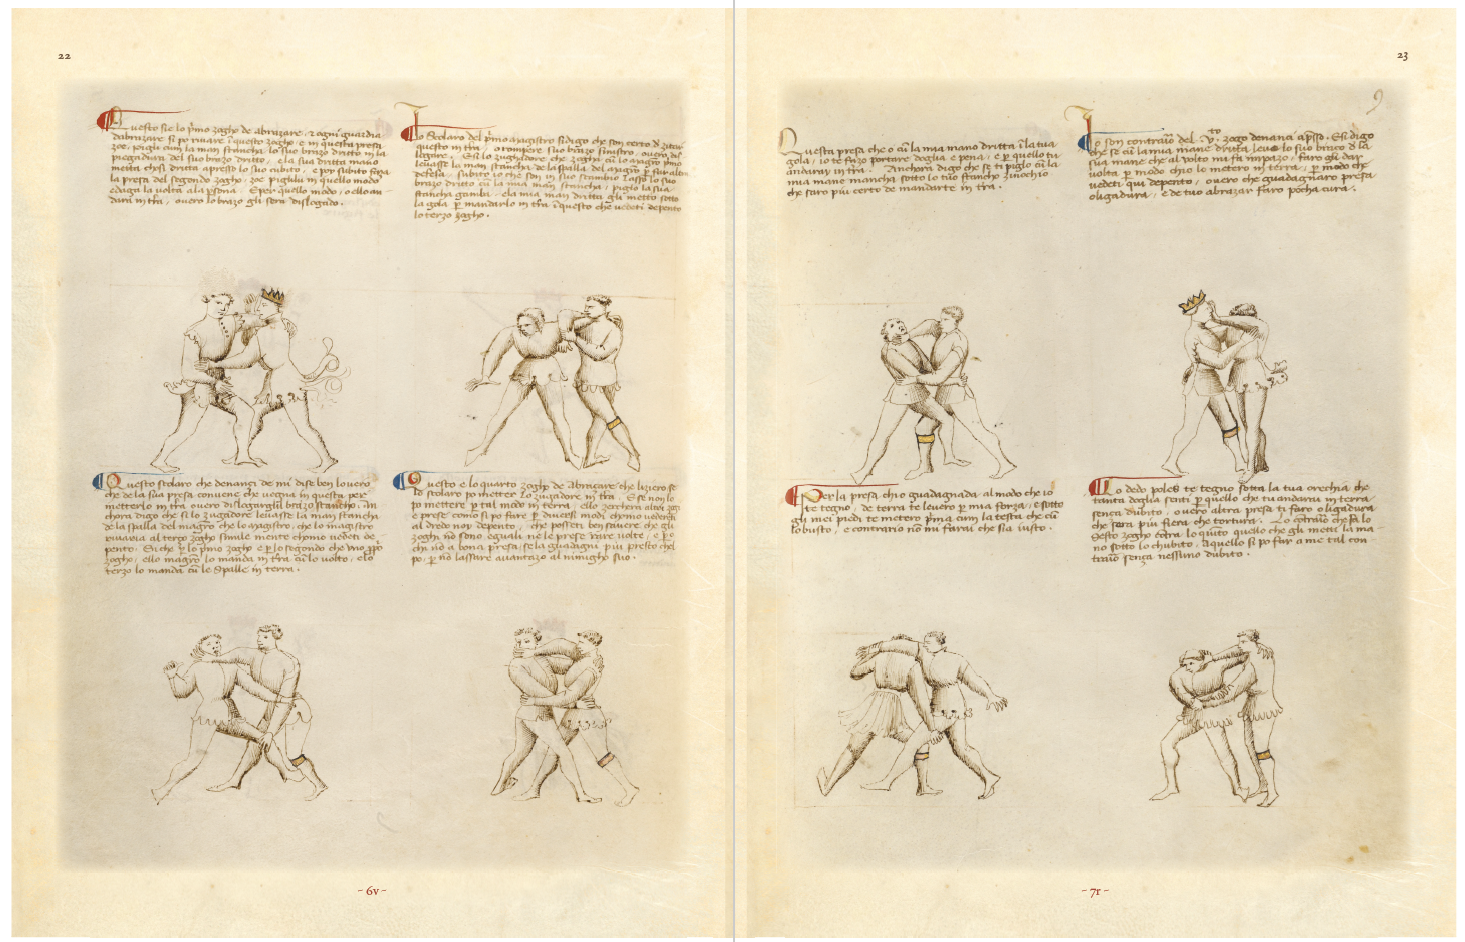 22
Questo sie lo p̄mo zogho de abrazare, ⁊ ogni guardia
dabrazare si po rivare ī questo zogho, e in questa presa
zoe, pigli cum la man stancha lo suo brazo dritto in la
piegadura del suo brazo dritto, e la sua dritta mano
metta chosi dritta apresso lo suo cubito, e poy subito faza
la presa del segondo zogho, zoe piglilu in quello modo
e daga la volta ala p̱sona. E per quello modo, o ello an-
dara in t̄ra, overo lo brazo gli sera dislogado.
Lo Scolaro del p̄mo magistro si digo che son certo de zitar
questo in t̄ra, o rompere suo brazo sinistro, overo del
legare. E si lo zughadore che zogha cū lo magistro p̄mo
levasse la man stancha de la spalla del magistro p̱ far altra
defesa, subito io che son in suo scambio lasso lo suo
brazo dritto cū la mia man stancha, e piglo la sua
stancha gamba, e la mia man dritta gli metto sotto
la gola p̱ mandarlo in t̄ra ī questo che vedeti depento
lo terzo zogho.
Questo scolaro che denançi de mi dise ben lo vero
che de la sua presa convene che vegna in questa per
metterlo in t̄ra overo disligargli lo brazo stancho. An
chora digo che si lo zugadore levasse la man stancha
de la spalla del magistro che lo magistro
rivaria al terço zogho similemente chomo vedeti de
pento. Si che p̱ lo p̄mo zogho e p̱ lo segondo che uno p̱p̱o
zogho, ello magistro lo manda in t̄ra cū lo volto, e lo
terzo lo manda cū le spalle in terra.
Questo e lo quarto zogho de abraçare che liziero se
lo scolaro po metter lo zugadore in t̄ra. E se non lo
po mettere p̱ tal modo in terra, ello zercherà altri zoghi
e prese como si po fare p̱ diversi modi chomo vedereti
al dredo noy depento, che posseti ben savere che gli
zoghi nō sono eguali ne le prese rare volte, e p̱o
chi nō a bona presa se la guadagni piu presto chel
po, p̱ nō lassare avantazo al nimigho suo.
- 6v -
23
9
Questa presa che o cū la mia mano dritta ī la tua
gola, io te fazo portare doglia e pena, e p̱ quello tu
andaray in t̄ra. Anchora digo che se ti piglo cū la
mia mane mancha sotto lo tuo stancho zinochio
che saro piu certo de mandarte in t̄ra.
Io son contrario del v̊. zogo denanci ap̱sso. E si digo
che se cū la mia mane dritta levo lo suo brazo de la
sua mane che al volto mi fa impazo, faro gli dar
volta p̱ modo chio lo metero in terra, p̱ modo che
vedeti qui depento, overo che guadagnaro presa
o ligadura, e de tuo abrazar faro pocha cura.
Per la presa chio guadagnada al modo che io
te tegno, de terra te levero p̱ mia forza, e sotto
gli miei piedi te metero p̄ma cum la testa che cū
lo busto, e contrario nō mi farai che sia iusto.
Lo dedo poles te tegno sotto la tua orechia che
tanta doglia senti p̱ quello che tu andaria in terra
sença dubito, overo altra presa ti faro o ligadura
che sera piu fiera che tortura. Lo cōtrario che fa lo
Sesto zogho cōtra lo quito quello che gli metti la ma-
no sotto lo chubito, aquello si po far a me tal con-
trario sença nessuno dubito.
- 7r -